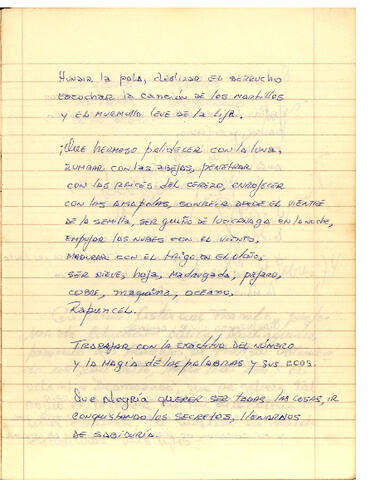 Hundir la pala, deslizar el serrucho
escuchar la canción de los martillos
y el murmullo leve de la lija.
¡Qué hermoso palidecer con la luna,
zumbar con las abejas, penetrar
con las raíces del cerezo, enrojecer
con las amapolas, sonreír desde el vientre
de la semilla, ser guiño de luciérnaga en la noche,
empujar las nubes con el viento,
madurar con el trigo en el otoño;
ser nieve, hoja, madrugada, pájaro,
cobre, máquina, oceano.
Rapuncel.
Trabajar con la exactitud del número
y la magia de las palabras y sus ecos.
Que alegría querer ser todas las cosas, ir
conquistando los secretos, llenarnos
de sabiduría.